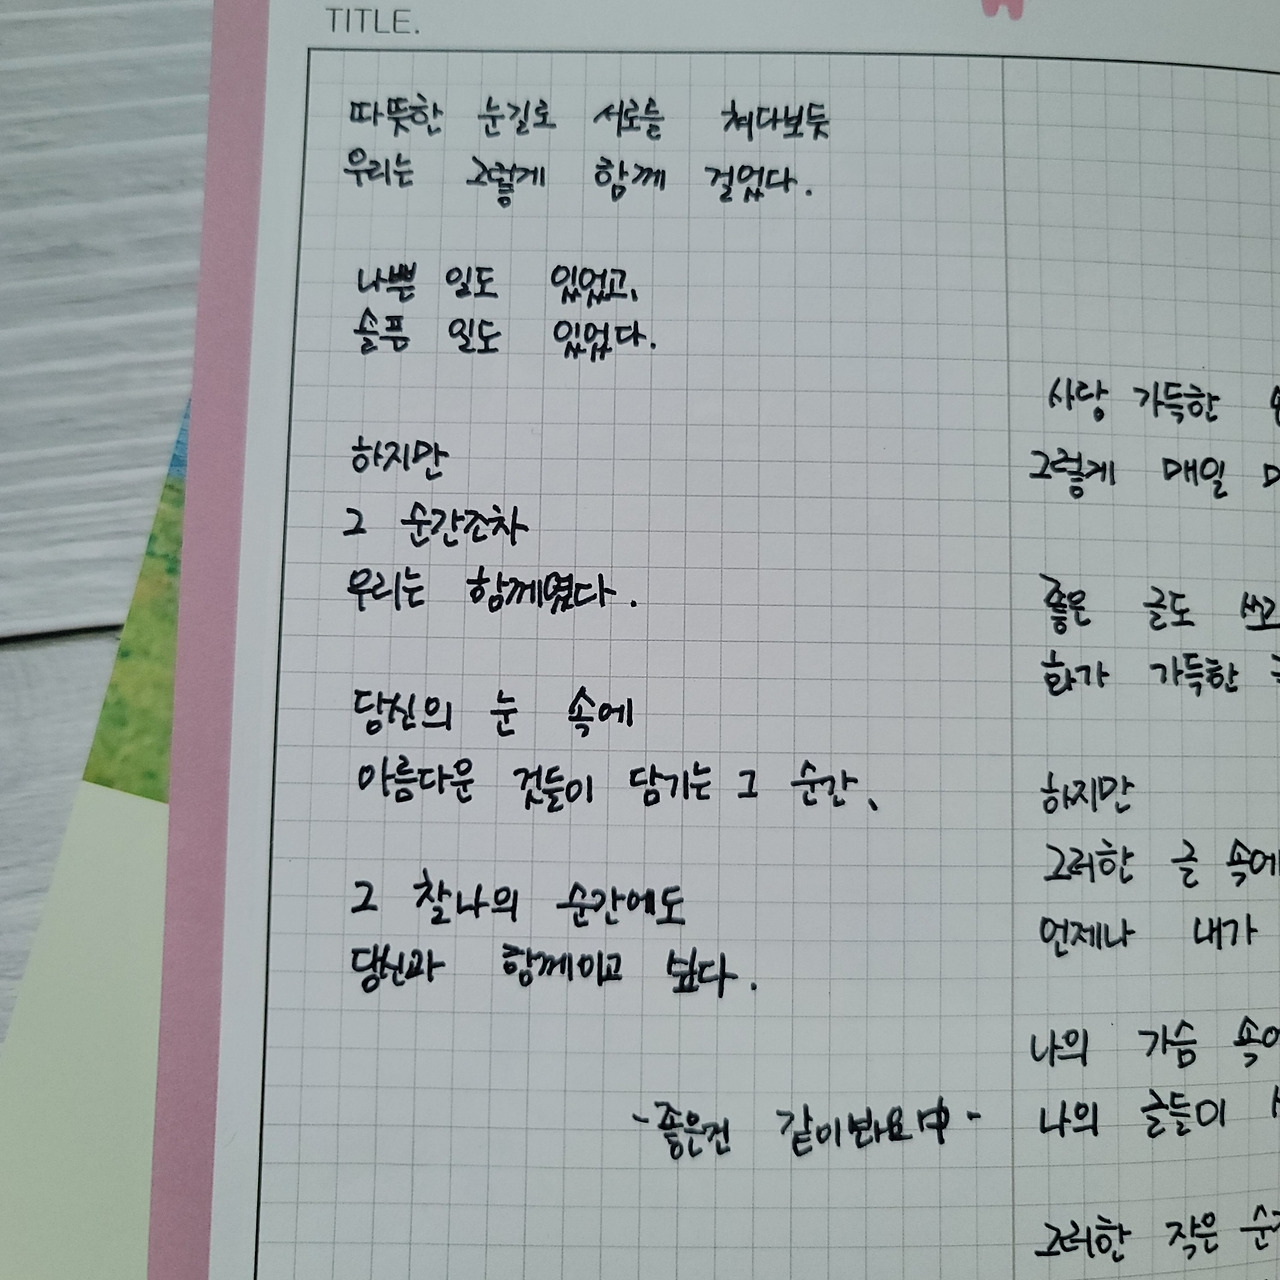 TITLE.
따뜻한 눈길로 서로를 쳐다보듯
우리는 그렇게 함께 걸었다.
나쁜 일도 있었고,
슬픔 일도 있었다.
하지만
그 순간조차
우리는 함께였다.
당신의 눈 속에
아름다운 것들이 담기는 그 순간,
그 찰나의 순간에도
당신과 함께이고 싶다.
-좋은건 같이봐요 中-
사랑 가득한
그렇게 매일
좋은 글도 쓰고
화가 가득한
하지만
그러한 글 속에
언제나 내가
나의 가슴 속에
나의 글들이
그러한 작은